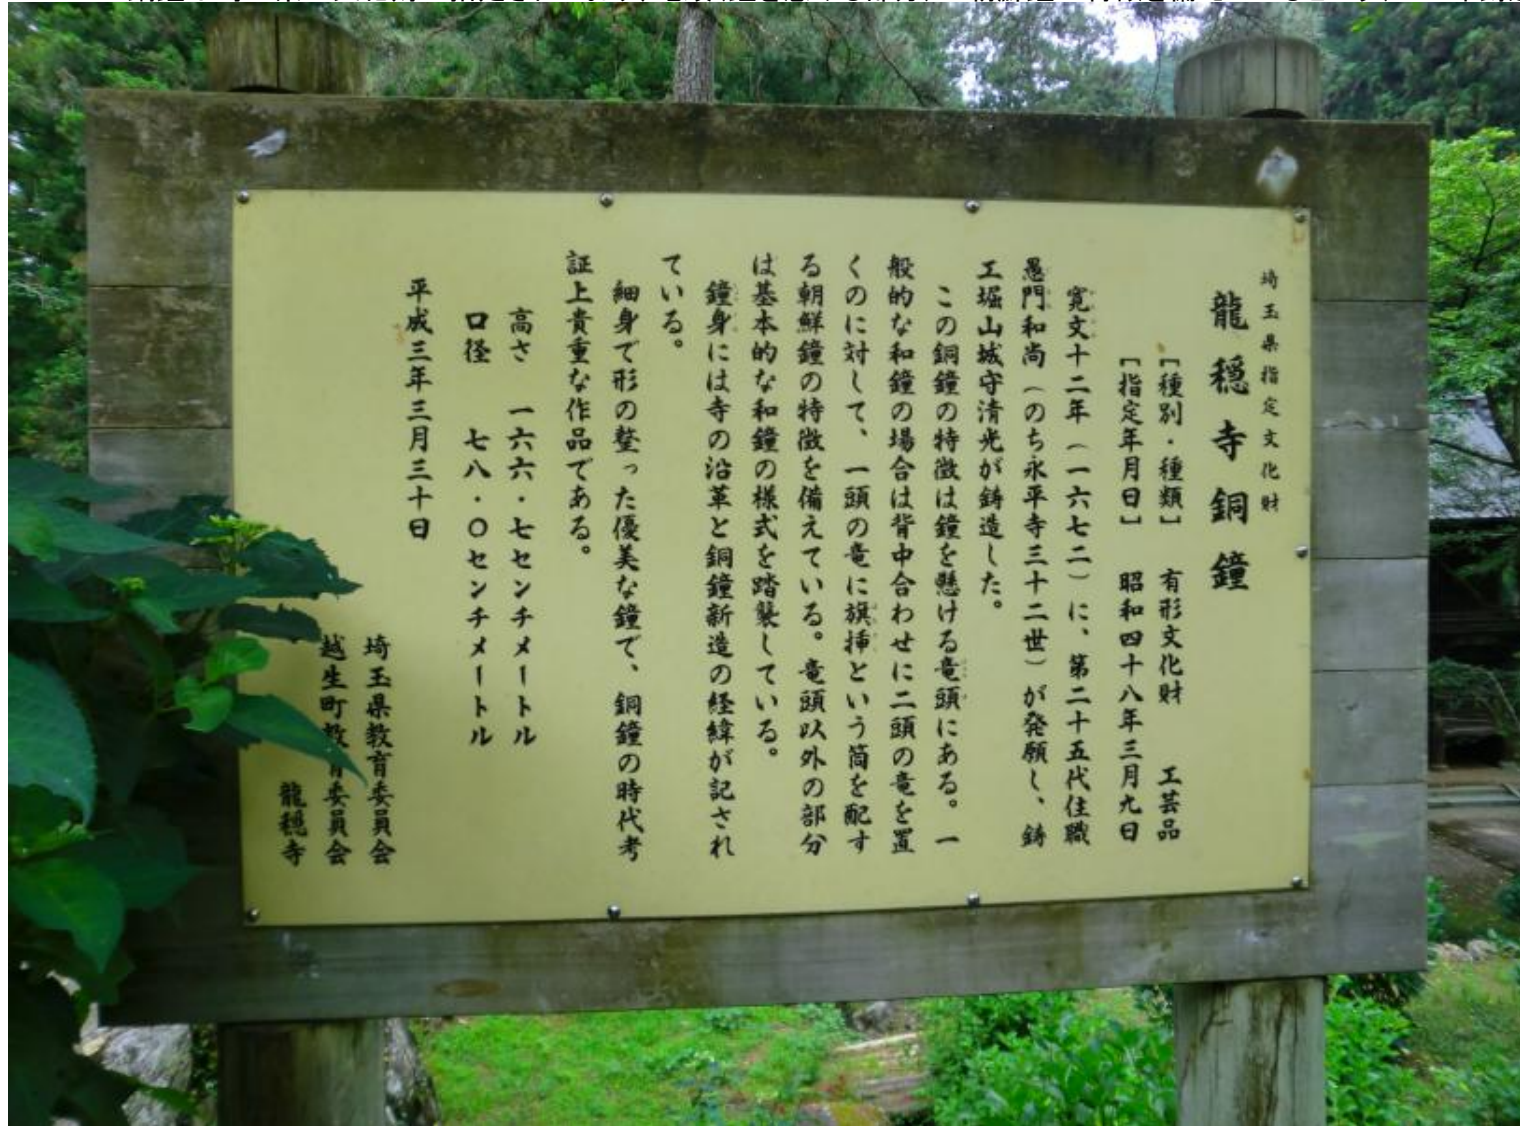 埼玉県指定文化財
龍穏寺銅鐘
［種別・種類］ 有形文化財 工芸品
［指定年月日］ 昭和四十八年三月九日
寛文十二年（一六七二）に、第二十五代住職
愚門和尚（のち永平寺三十二世）が発願し、鋳
工堀山城守清光が鋳造した。
この銅鐘の特徴は鐘を懸ける竜頭にある。一
般的な和鐘の場合は背中合わせに二頭の竜を置
くのに対して、一頭の竜に旗挿という筒を配す
る朝鮮鐘の特徴を備えている。竜頭以外の部分
は基本的な和鐘の様式を踏襲している。
鐘身には寺の沿革と銅鐘新造の経緯が記され
ている。
細身で形の整った優美な鐘で、銅鐘の時代考
証上貴重な作品である。
高さ 一六六・七センチメートル
口径 七八・〇センチメートル
平成三年三月三十日
埼玉県教育委員会
越生町教育委員会
龍穏寺